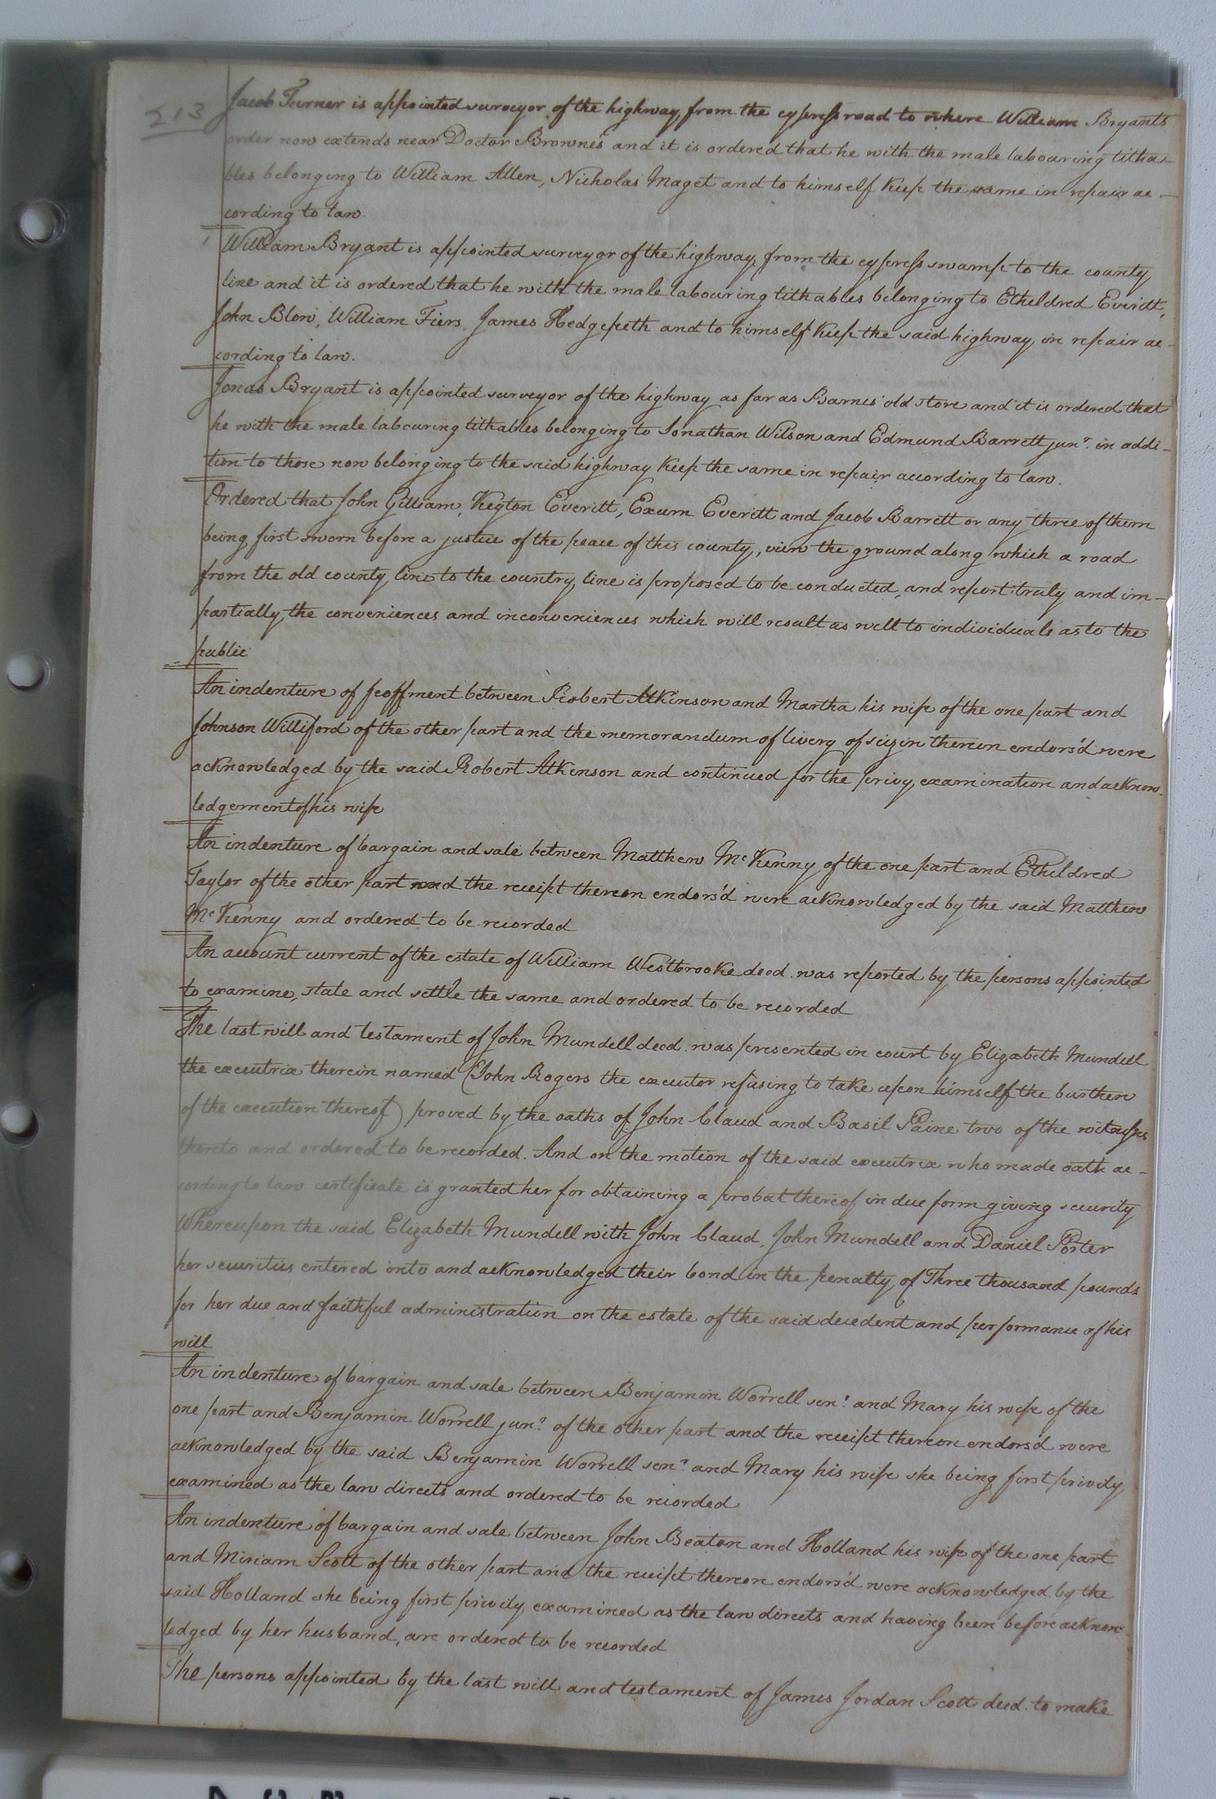 213
Jacob Turner is appointed surveyor of the highway, from the cypress road to where William Bryants
order now extends near Doctor Brownes and it is ordered that he with the male labouring titha-
bles belonging to William Allen, Nicholas Maget and to himself keep the same in repair ac-
cording to law.
William Bryant is appointed surveyor of the highway, from the cypress swamp to the county
line and it is ordered that he with the male labouring tithables belonging to Etheldred Everitt,
John Blow, William Fiers, James Hedgepeth and to himself keep the said highway in repair ac-
cording to law.
Jonas Bryant is appointed surveyor of the highway as far as Barnes' old store and it is ordered that
he with the male labouring tithables belonging to Jonathan Wilson and Edmund Barrett junr. in addi-
tion to those now belonging to the said highway keep the same in repair according to law.
Ordered that John Gilliam, Kegton Everitt, Exum Everitt and Jacob Barrett or any three of them
being first sworn before a justice of the peace of this county, view the ground along which a road
from the old county line to the country line is proposed to be conducted, and report truly and im-
partially, the conveniences and inconveniences which will result as well to individuals as to the
public
An indenture of feoffment between Robert Atkinson and Martha his wife of the one part and
Johnson Williford of the other part and the memorandum of livery of seizin therein endors'd were
acknowledged by the said Robert Atkinson and continued for the privy examination and acknow-
ledgement of his wife
An indenture of bargain and sale between Matthew McKenny of the one part and Etheldred
Taylor of the other part and the receipt thereon endors'd were acknowledged by the said Matthew
McKenny and ordered to be recorded
An account current of the estate of William Westbrooke decd. was reported by the persons appointed
to examine, state and settle the same and ordered to be recorded
The last will and testament of John Mundell decd. was presented in court by Elizabeth Mundell
the executrix therein named (John Rogers the executor refusing to take upon himself the burthen
of the execution thereof) proved by the oaths of John Claud and Basil Paine two of the witnesses
thereto and ordered to be recorded. And on the motion of the said executrix who made oath ac-
cording to law certificate is granted her for obtaining a probat thereof in due form giving security
Whereupon the said Elizabeth Mundell with John Claud, John Mundell and Daniel Porter
her securities entered into and acknowledged their bond in the penalty of Three thousand pounds
for her due and faithful administration on the estate of the said decedent and performance of his
will
An indenture of bargain and sale between Benjamin Worrell senr. and Mary his wife of the
one part and Benjamin Worrell junr. of the other part and the receipt thereon endors'd were
acknowledged by the said Benjamin Worrell senr. and Mary his wife she being first privily
examined as the law directs and ordered to be recorded
An indenture of bargain and sale between John Beaton and Holland his wife of the one part
and Miriam Scott of the other part and the receipt thereon endors'd were acknowledged by the
said Holland she being first privily examined as the law directs and having been before acknow-
ledged by her husband, are ordered to be recorded
The persons appointed by the last will and testament of James Jordan Scott decd. to make